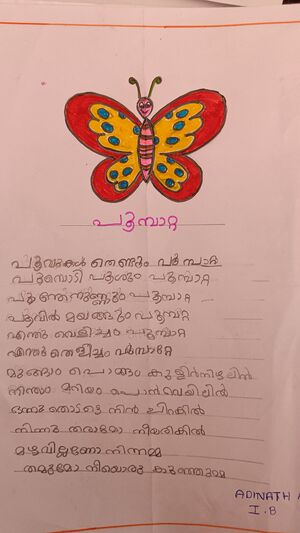 പൂമ്പാറ്റ
പൂവുകൾ തെണ്ടും പൂമ്പാറ്റ
പൂമ്പൊടി പൂശും പൂമ്പാറ്റ
പൂന്തേനുണ്ണും പൂമ്പാറ്റ
പൂവിൽ മയങ്ങും പൂമ്പാറ്റ
എന്തു വെളിച്ചം പൂമ്പാറ്റ
എന്തു തെളിച്ചം പൂമ്പാറ്റേ
മുങ്ങാം പൊങ്ങാം കുളിർനിഴലിൽ
നീന്തും മറിയും പൊൻവെയിലിൽ
ഒന്നു തൊടട്ടെ നിൻ ചിറകിൽ
നിന്നു തരുമോ നീയരികിൽ
മഴവില്ലാണോ നിന്നമ്മ
തരുമോ നീയൊരു കുഞ്ഞുമ്മ
ADINATH
I.B